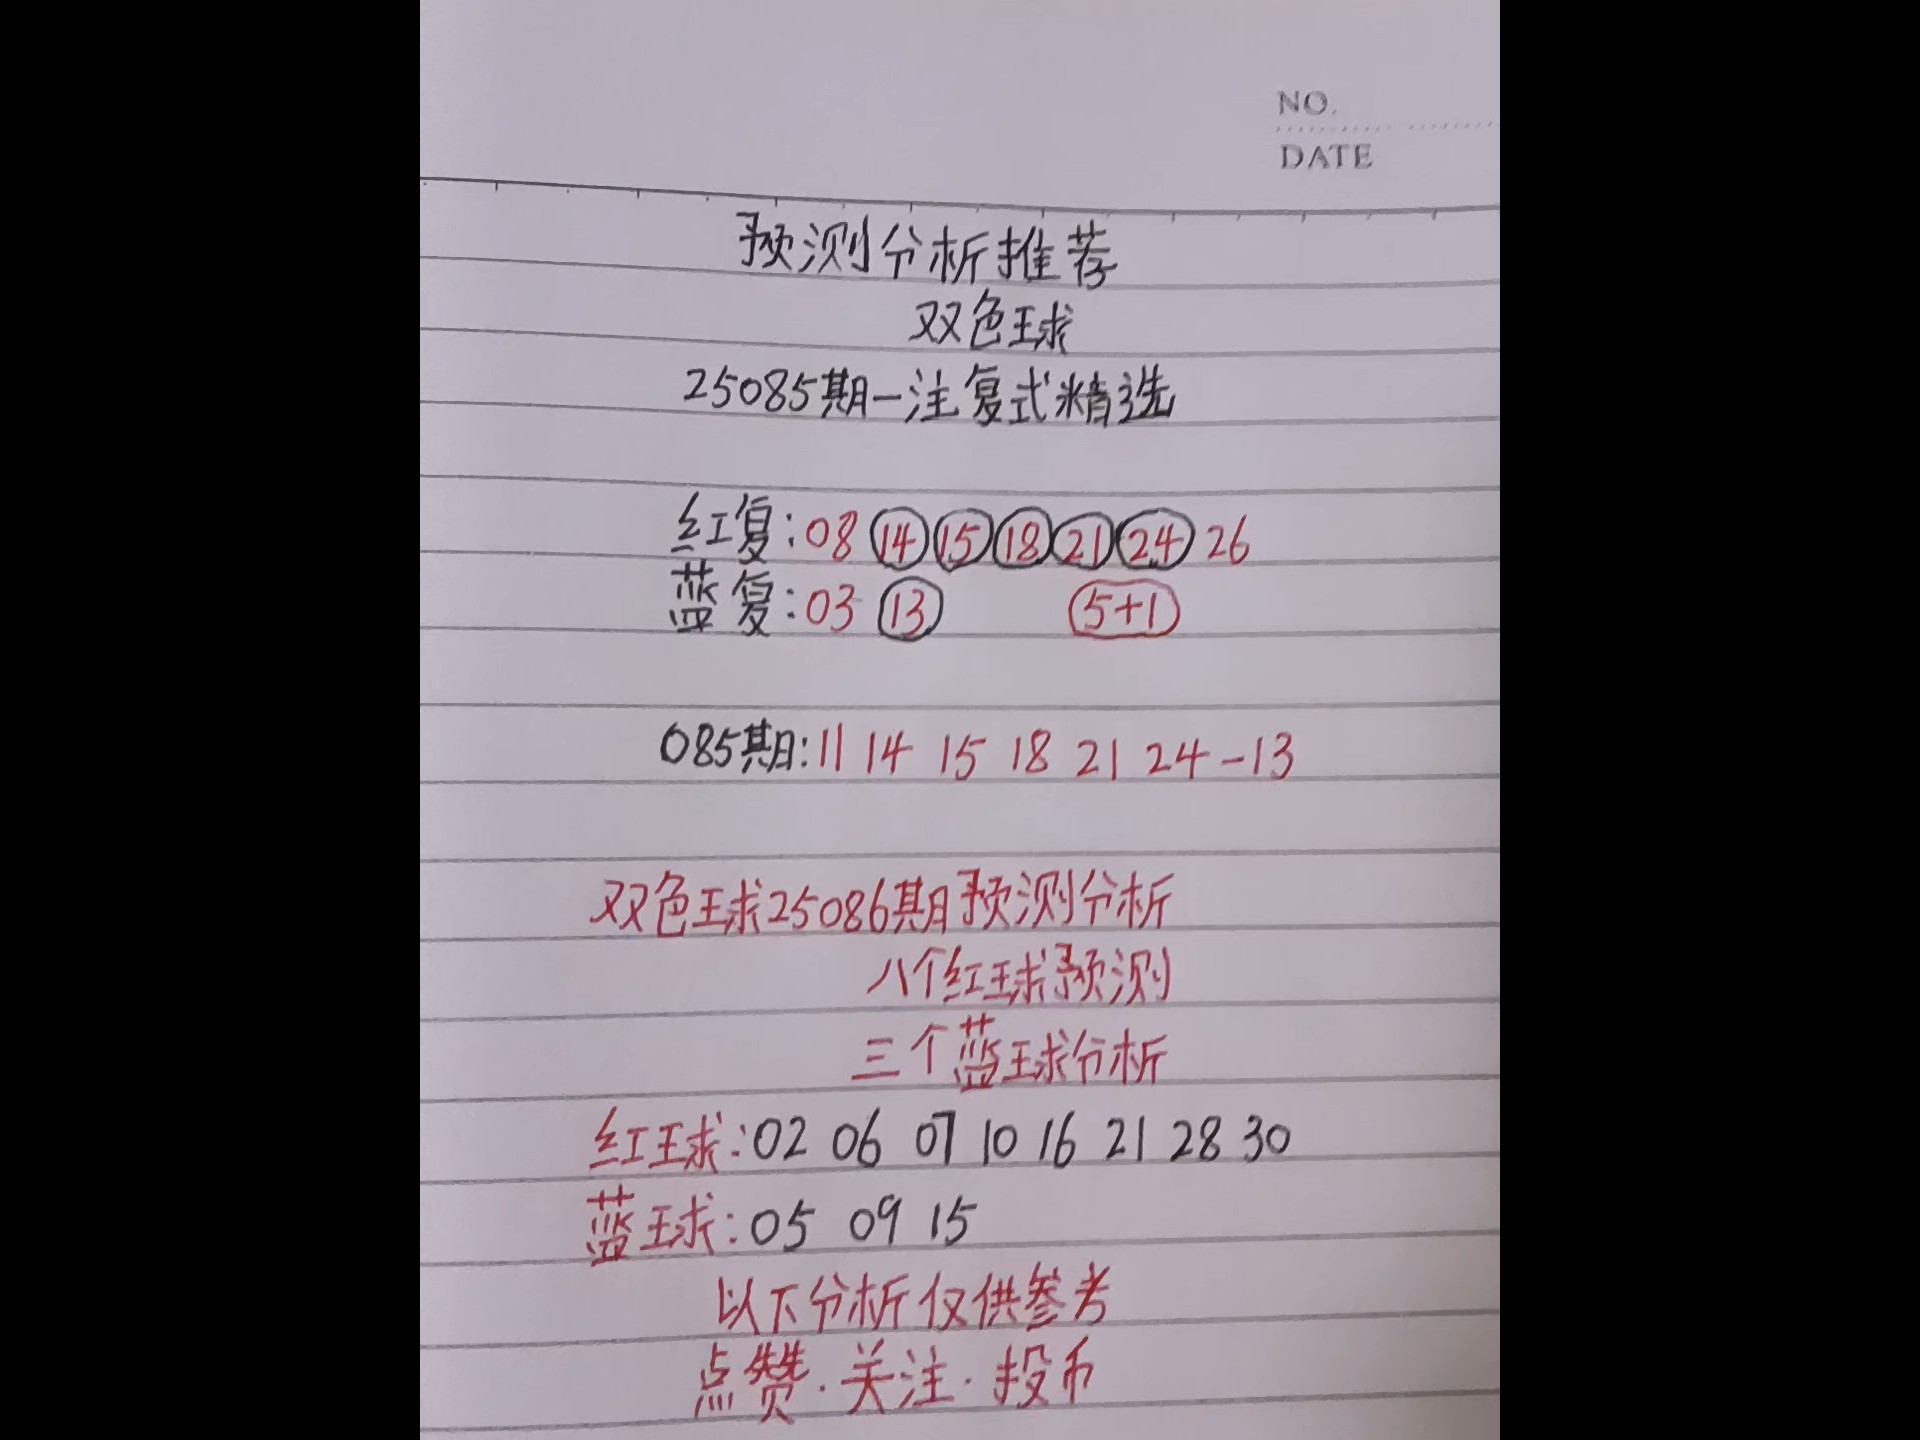 NO.
DATE
预测分析推荐
双色球
25085期一注复式精选
红复:08 14 15 18 21 24 26
蓝复:03 13 5+1
085期:11 14 15 18 21 24-13
双色球25086期预测分析
八个红球预测
三个蓝球分析
红球:02 06 07 10 16 21 28 30
蓝球:05 09 15
以下分析仅供参考
点赞·关注·投币